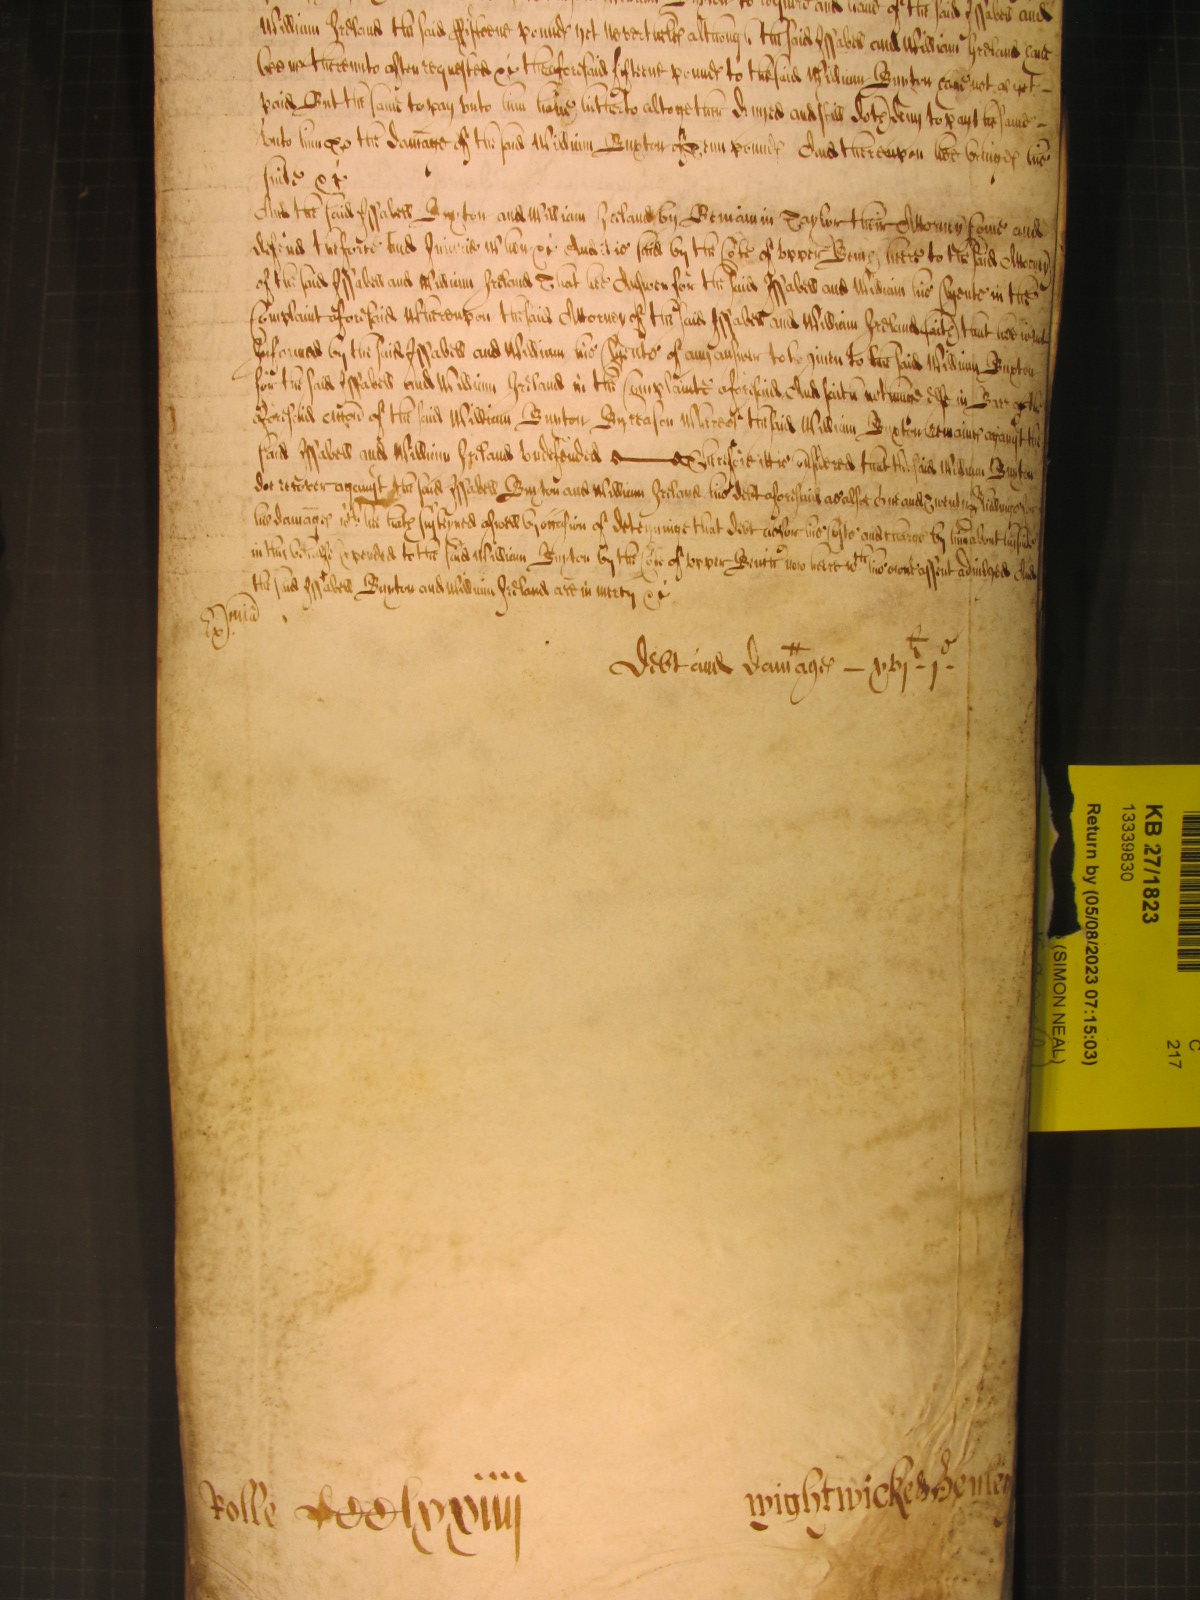 to require and have of the said Issabell and
William Ireland the said fifteene pounds yet neverthelesse although the said Issabell and William Ireland
thereunto often requested &c the aforesaid fifteene pounds to the said William Buxton have not as yet
paid But the same to pay unto him have hitherto altogether denyed and still doth deny to pay the same
unto him &c the damage of the said William Buxton of tenn pounds And thereupon hee bringes his
suite &c
And the said Issabell Buxton and William Ireland by Beniamin Taylor their Attorney Come and
defend the force and Iniurie when &c And it is said by the Cort of upper Bench heere to the said Attorney
of the said Issabell and William Ireland That hee Answer for the said Issabell and William his Clyents in the
Complaint aforesaid Whereupon the said Attorney of the said Issabell and William Ireland saith that hee is not
Informed by the said Issabell and William his Clyents of any answer to be given to the said William Buxton
for the said Issabell and William Ireland in the Complainte aforesaid And saith nothinge else in Barr of the
aforesaid accion of the said William Buxton By reason whereof the said William Buxton remaines against the
said Issabell and William Ireland undefended Therefore it is considered that the said William Buxton
doe recover against the said Issabell Buxton and William Ireland his debt aforesaid as alsoe one and twenty shillings for
his damages wch hee hath susteyned aswell by occasion of deteyninge that debt as for his costs and charges by him about his suite
in this behalfe expended to the said William Buxton by the Cort of upper Bench now heere wth his owne assent adiudged And
the said Issabell Buxton and William Ireland are in mercy &c
mia
Debt and Damages — xvj li j s
Rolle dcclxxiiij
wightwicke & Henley
KB 27/1823
13339830
Return by (05/08/2023 07:15:03)
(SIMON NEAL)
C
217